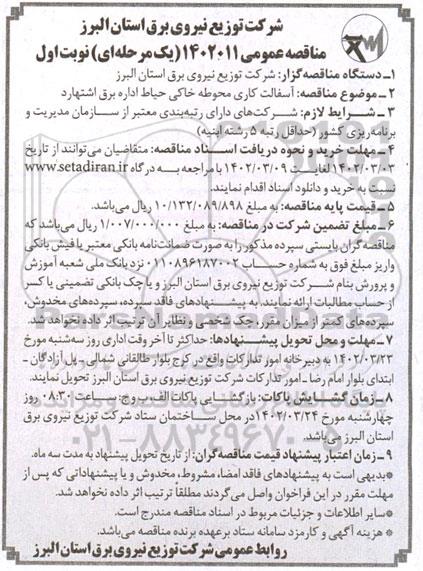 شرکت توزیع نیروی برق استان البرز
مناقصه عمومی ۱۴۰۲۰۱۱ (یک مرحله‌ای) نوبت اول
۱- دستگاه مناقصه‌گزار: شرکت توزیع نیروی برق استان البرز
۲- موضوع مناقصه: آسفالت کاری محوطه خاکی حیاط اداره برق اشتهارد
۳ - شرایط لازم: شرکت‌های دارای رتبه‌بندی معتبر از سازمان مدیریت و
برنامه‌ریزی کشور (حداقل رتبه ۵ رشته ابنیه)
۴ - مهلت خرید و نحوه دریافت اسناد مناقصه: متقاضیان می‌توانند از تاریخ
۱۴۰۲/۰۳/۰۳ لغایت ۱۴۰۲/۰۳/۰۹ با مراجعه به درگاه www.setadiran.ir
نسبت به خرید و دانلود اسناد اقدام نمایند.
۵- قیمت پایه مناقصه: به مبلغ ۱۰/۱۳۲/۰۸۹/۸۹۸ ریال می‌باشد.
۶ - مبلغ تضمین شرکت در مناقصه: به مبلغ ۱/۰۰۷/۰۰۰/۰۰۰ ریال می‌باشد که
مناقصه‌گران بایستی سپرده مذکور را به صورت ضمانت‌نامه بانکی معتبر یا فیش بانکی
واریز مبلغ فوق به شماره حساب ۰۱۱۰۸۹۶۱۸۷۰۰۲ نزد بانک ملی شعبه آموزش
و پرورش بنام شرکت توزیع نیروی برق استان البرز و یا چک بانکی تضمینی یا کسر
از حساب مطالبات ارائه نمایند. به پیشنهادهای فاقد سپرده، سپرده‌های مخدوش،
سپرده‌های کمتر از میزان مقرر، چک شخصی و نظایر آن ترتیب اثر داده نخواهد شد.
۷- مهلت و محل تحویل پیشنهادها: حداکثر تا آخر وقت اداری روز سه‌شنبه مورخ
۱۴۰۲/۰۳/۲۳ به دبیرخانه امور تدارکات واقع در کرج بلوار طالقانی شمالی - پل آزادگان -
ابتدای بلوار امام رضا - امور تدارکات شرکت توزیع نیروی برق استان البرز تحویل نمایند.
۸ - زمان گشایش پاکات: بازگشایی پاکات الف ب و ج: ساعت ۰۸:۳۰ روز
چهارشنبه مورخ ۱۴۰۲/۰۳/۲۴ در محل ساختمان ستاد شرکت توزیع نیروی برق
استان البرز می‌باشد.
۹- زمان اعتبار پیشنهاد قیمت مناقصه‌گران: از تاریخ تحویل پیشنهاد به مدت سه ماه.
* بدیهی است به پیشنهادهای فاقد امضا، مشروط، مخدوش و یا پیشنهاداتی که پس از
مهلت مقرر در این فراخوان واصل می‌گردند مطلقاً ترتیب اثر داده نخواهد شد.
* سایر اطلاعات و جزئیات مربوط در اسناد مناقصه مندرج است.
* هزینه آگهی و کارمزد سامانه ستاد برعهده برنده مناقصه می‌باشد.
روابط عمومی شرکت توزیع نیروی برق استان البرز